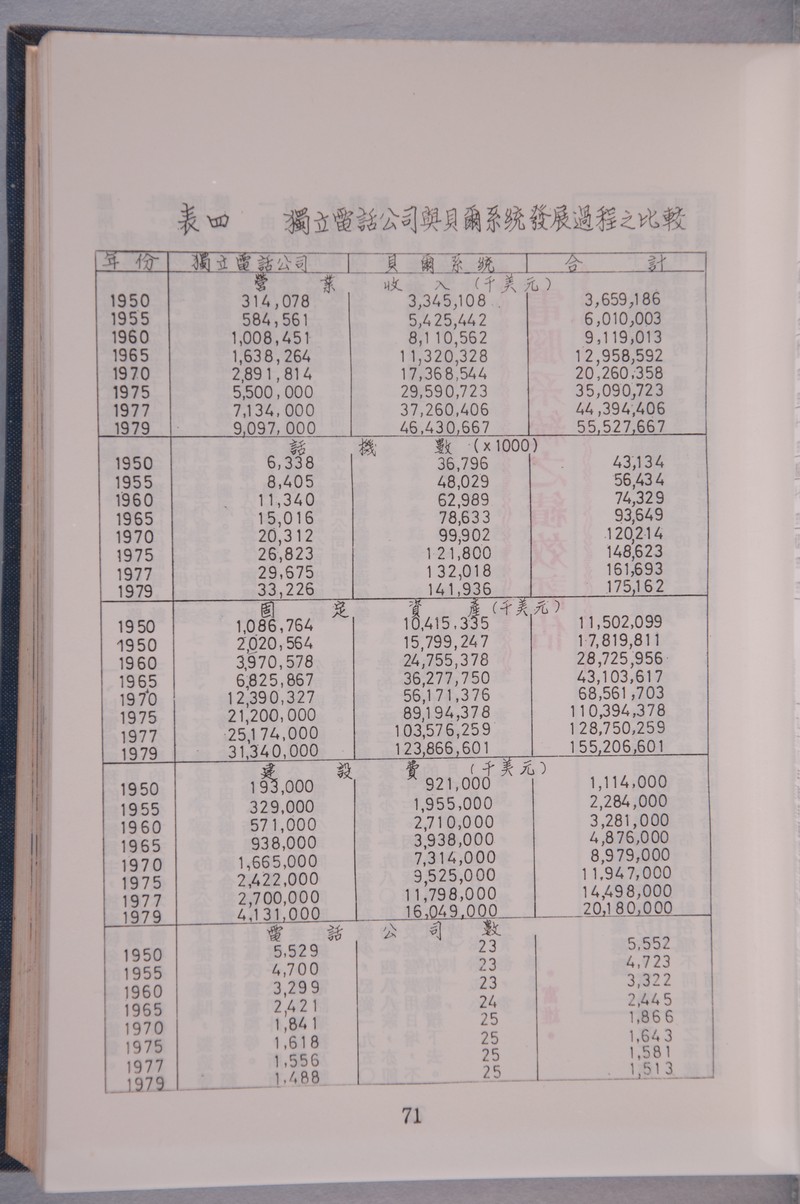 表四 獨立電話公司與貝爾系統發展過程之比較
年份 獨立電話公司 貝爾系統 合計
營業收入(千美元)
1950 314,078 3,345,108 3,659,186
1955 584,561 5,425,442 6,010,003
1960 1,008,451 8,110,562 9,119,013
1965 1,638,264 11,320,328 12,958,592
1970 2,891,814 17,368,544 20,260,358
1975 5,500,000 29,590,723 35,090,723
1977 7,134,000 37,260,406 44,394,406
1979 9,097,000 46,430,667 55,527,667
話機數(x1000)
1950 6,338 36,796 43,134
1955 8,405 48,029 56,434
1960 11,340 62,989 74,329
1965 15,016 78,633 93,649
1970 20,312 99,902 120,214
1975 26,823 121,800 148,623
1977 29,675 132,018 161,693
1979 33,226 141,936 175,162
固定資產(千美元)
1950 1,086,764 10,415,335 11,502,099
1950 2,020,564 15,799,247 17,819,811
1960 3,970,578 24,755,378 28,725,956
1965 6,825,867 36,277,750 43,103,617
1970 12,390,327 56,171,376 68,561,703
1975 21,200,000 89,194,378 110,394,378
1977 25,174,000 103,576,259 128,750,259
1979 31,340,000 123,866,601 155,206,601
建設費(千美元)
1950 193,000 921,000 1,114,000
1955 329,000 1,955,000 2,284,000
1960 571,000 2,710,000 3,281,000
1965 938,000 3,938,000 4,876,000
1970 1,665,000 7,314,000 8,979,000
1975 2,422,000 9,525,000 11,947,000
1977 2,700,000 11,798,000 14,498,000
1979 4,131,000 16,049,000 20,180,000
電話公司數
1950 5,529 23 5,552
1955 4,700 23 4,723
1960 3,299 23 3,322
1965 2,421 24 2,445
1970 1,841 25 1,866
1975 1,618 25 1,643
1977 1,556 25 1,581
1979 1,488 25 1,513
71